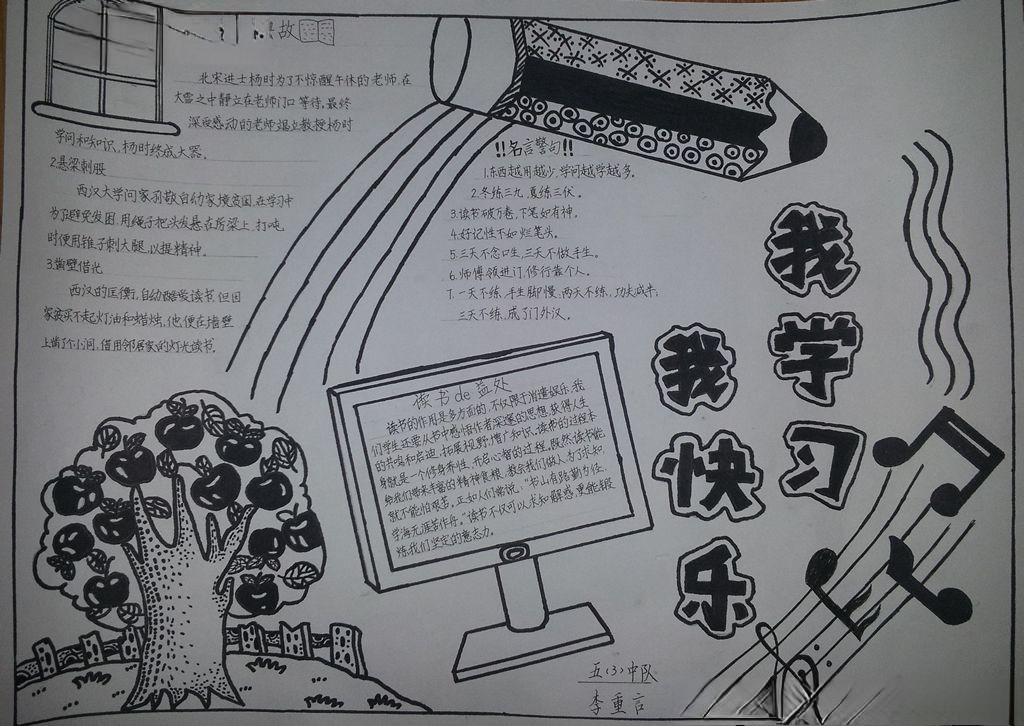 故
北宋进士杨时为了不惊醒午休的老师,在
大雪之中静立在老师门口等待,最终
深受感动的老师 教授杨时
学问和知识,杨时终成大器。
2.悬梁刺股
西汉大学问家孙敬自幼家境贫困,在学习中
为了避免发困,用绳子把头发悬在房梁上,打吨
时便用锥子刺大腿,以提精神。
3.凿壁借光
西汉的匡衡,自幼酷爱读书,但因
家贫买不起灯油和蜡烛,他便在墙壁
上凿了个小洞,借用邻居家的灯光读书。
!!名言警句!!
1.东西越用越少,学问越学越多。
2.冬练三九,夏练三伏。
3.读书破万卷,下笔如有神。
4.好记性不如烂笔头。
5.三天不念口生,三天不做手生。
6.师傅领进门,修行靠个人。
7.一天不练,手生脚慢,两天不练,功夫减半,
三天不练,成了门外汉。
我学习
我快乐
读书de益处
读书的作用是多方面的,不仅限于消遣娱乐,我
们学生还要从书中感悟作者深邃的思想,获得人生
的共鸣和启迪,拓展视野,增广知识,读书的过程本
身就是一个修身养性,开启心智的过程,既然读书能
给我们带来丰富的精神食粮,教会我们做人,为了求知,
就不能怕艰苦,正如人们常说,“书山有路勤为径,
学海无涯苦作舟。”读书不仅可以求知解惑,更能锻
炼我们坚定的意志力。
五(3)中队
李重言